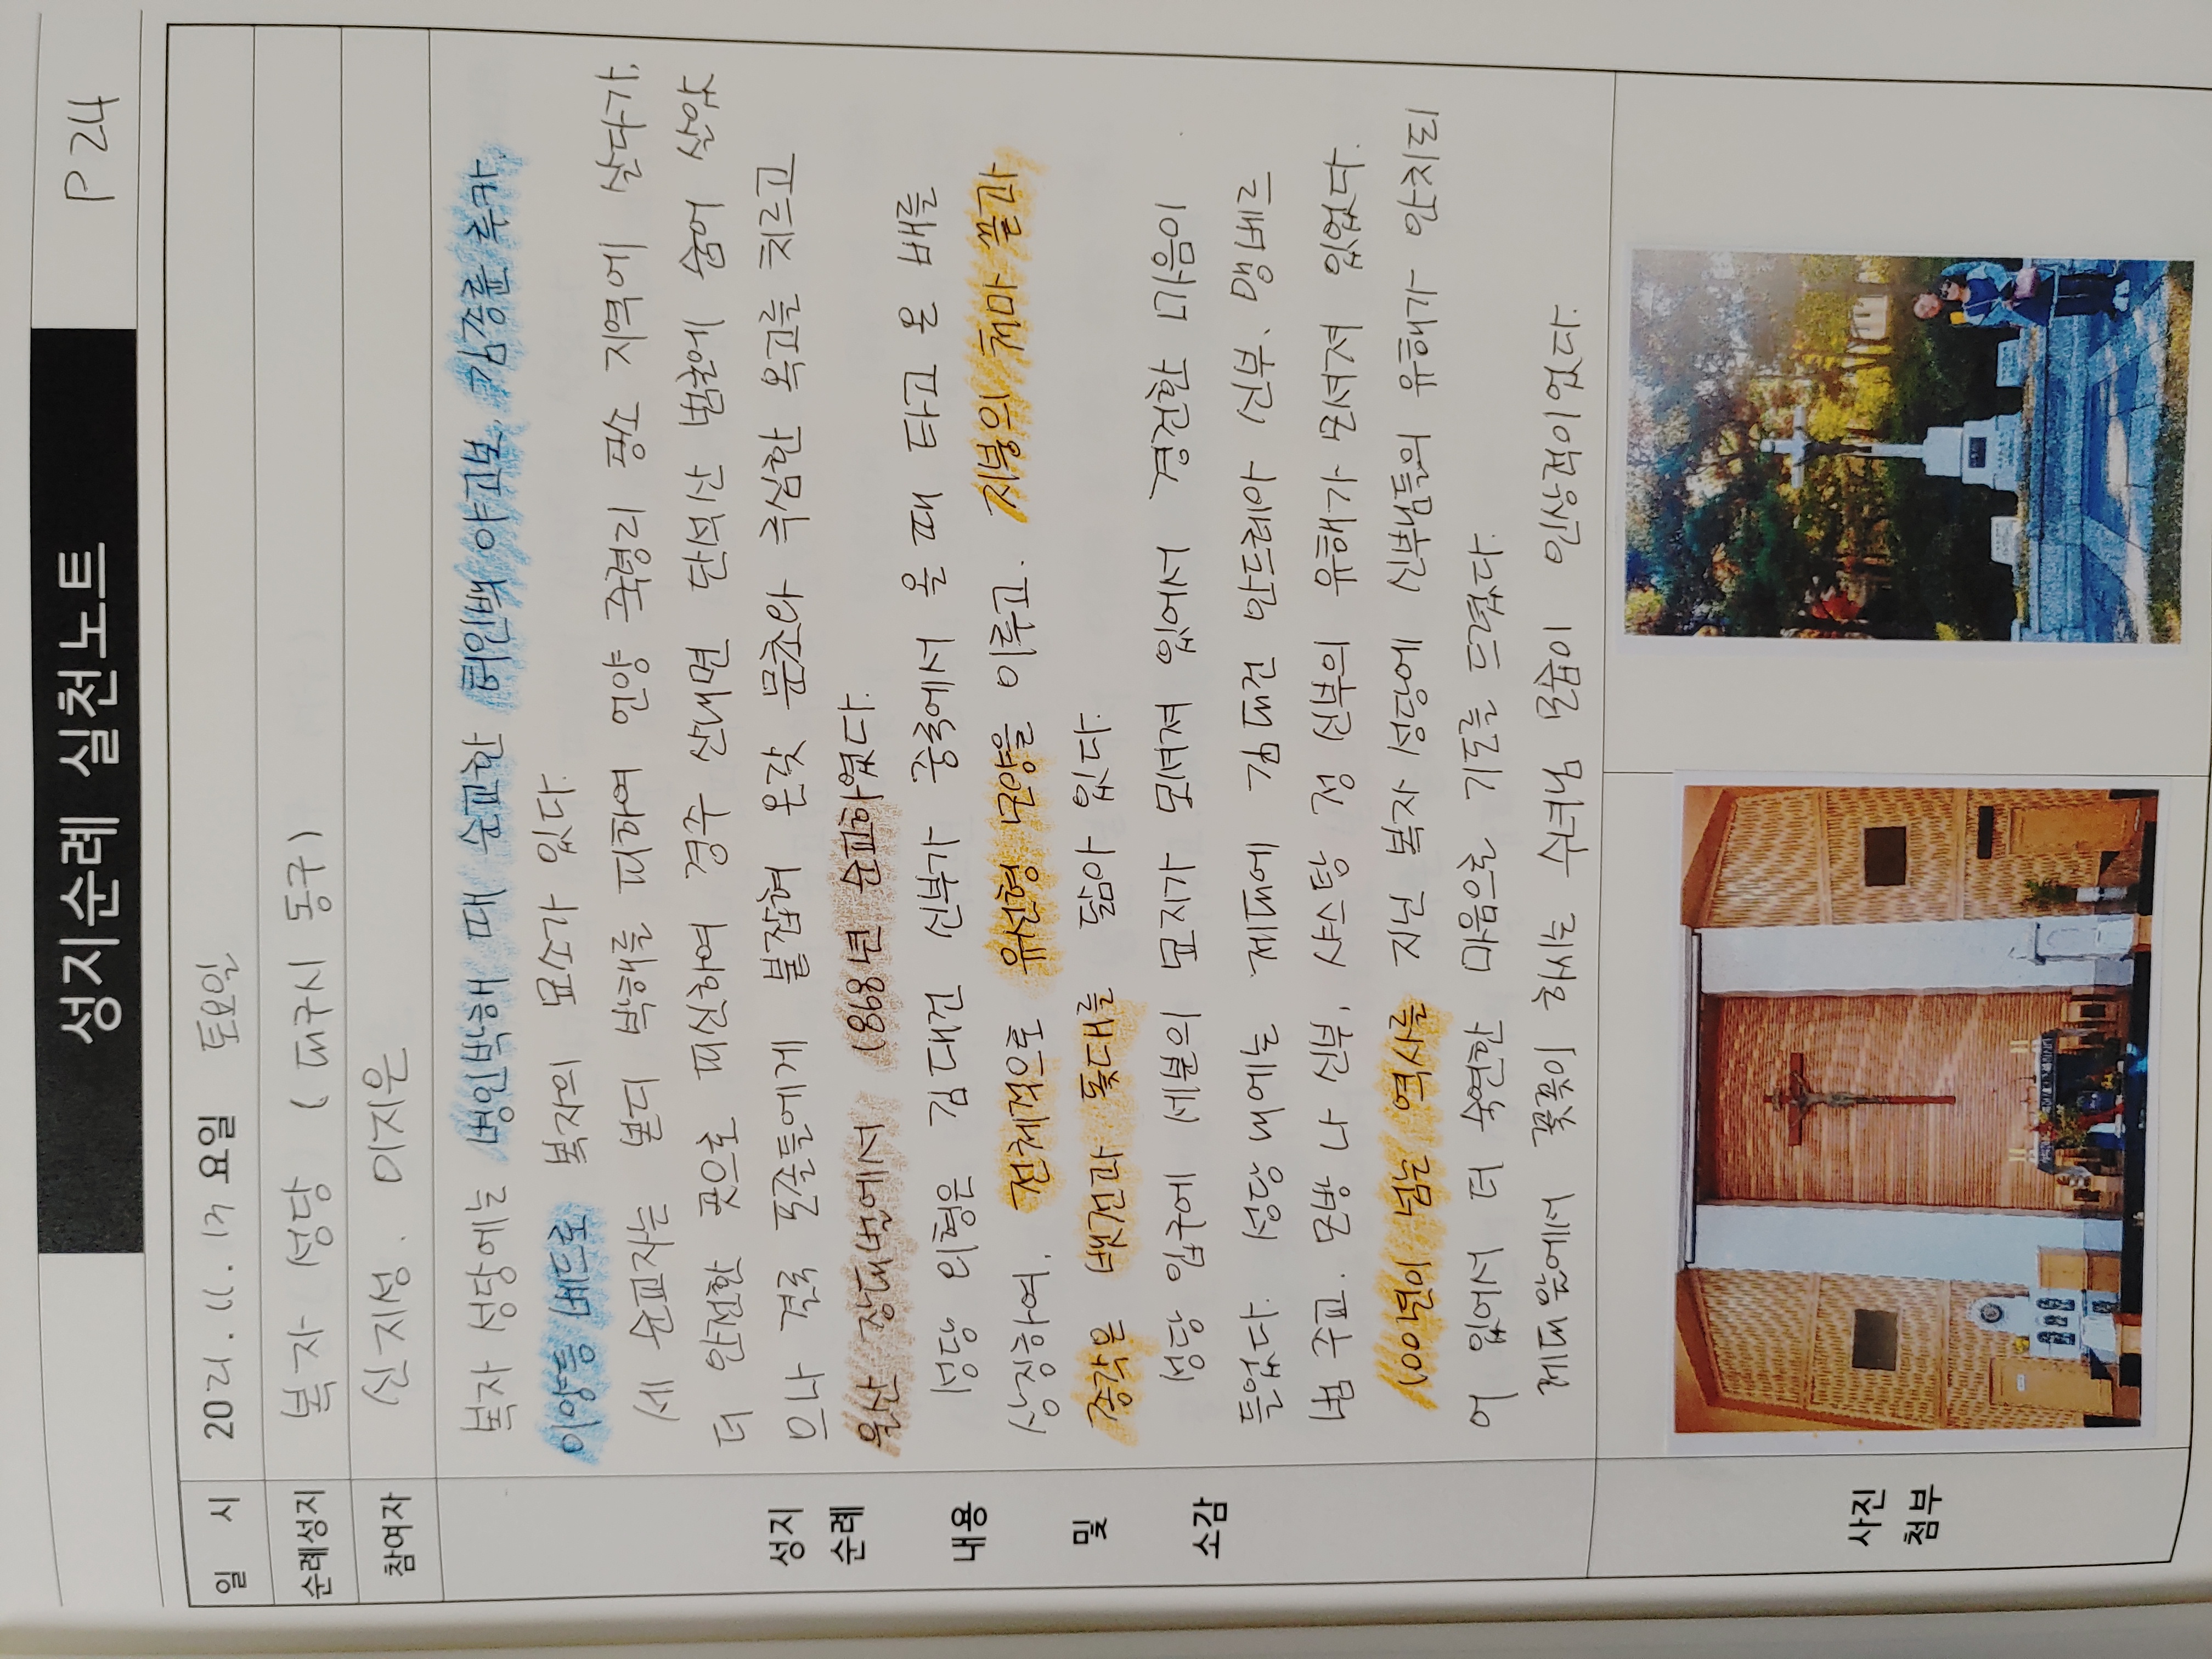 성지순례 실천노트
P 24
일 시
2021. 11. 13 요일 토요일
순례성지
복자 성당 (대구시 동구)
참여자
신지성. 이지은
성지
순례
내용
및
소감
복자 성당에는 병인박해 때 순교한 허인백 야고보, 김종륜 루카,
이양등 베드로 복자의 묘소가 있다.
세 순교자는 본디 박해를 피하여 언양 죽령리 광소 지역에 살다가,
더 안전한 곳으로 피신하여 경주 산내면 단석산 범굴에 숨어 살았
으나 결국 포졸들에게 붙잡혀 온갖 문초와 극심한 옥고를 치르고
울산 장대벌에서 1868년 순교하였다.
성당 외형은 김대건 신부가 중국에서 올 때 타고 온 배를
상징하여, 전체적으로 유선형 모양을 이루고, 지붕의 처마 끝과
종각은 뱃전과 돛대를 닮아 있다.
성당 입구에 세분의 묘지가 모셔져 있어서 경건한 마음이
들었다. 성당 내에는 제대에 김대건 안드레아 신부, 앵베르
범 주교, 모방 나 신부, 샤스탕 정 신부의 유해가 모셔져 있었다.
100년이 넘는 역사를 지닌 복자 성당에 신부님들의 유해가 안치되
어 있어서 더 숙연한 마음으로 기도를 드렸다.
제대앞에서 꽃꽂이 하시는 수녀님 모습이 인상적이었다.
사진
첨부